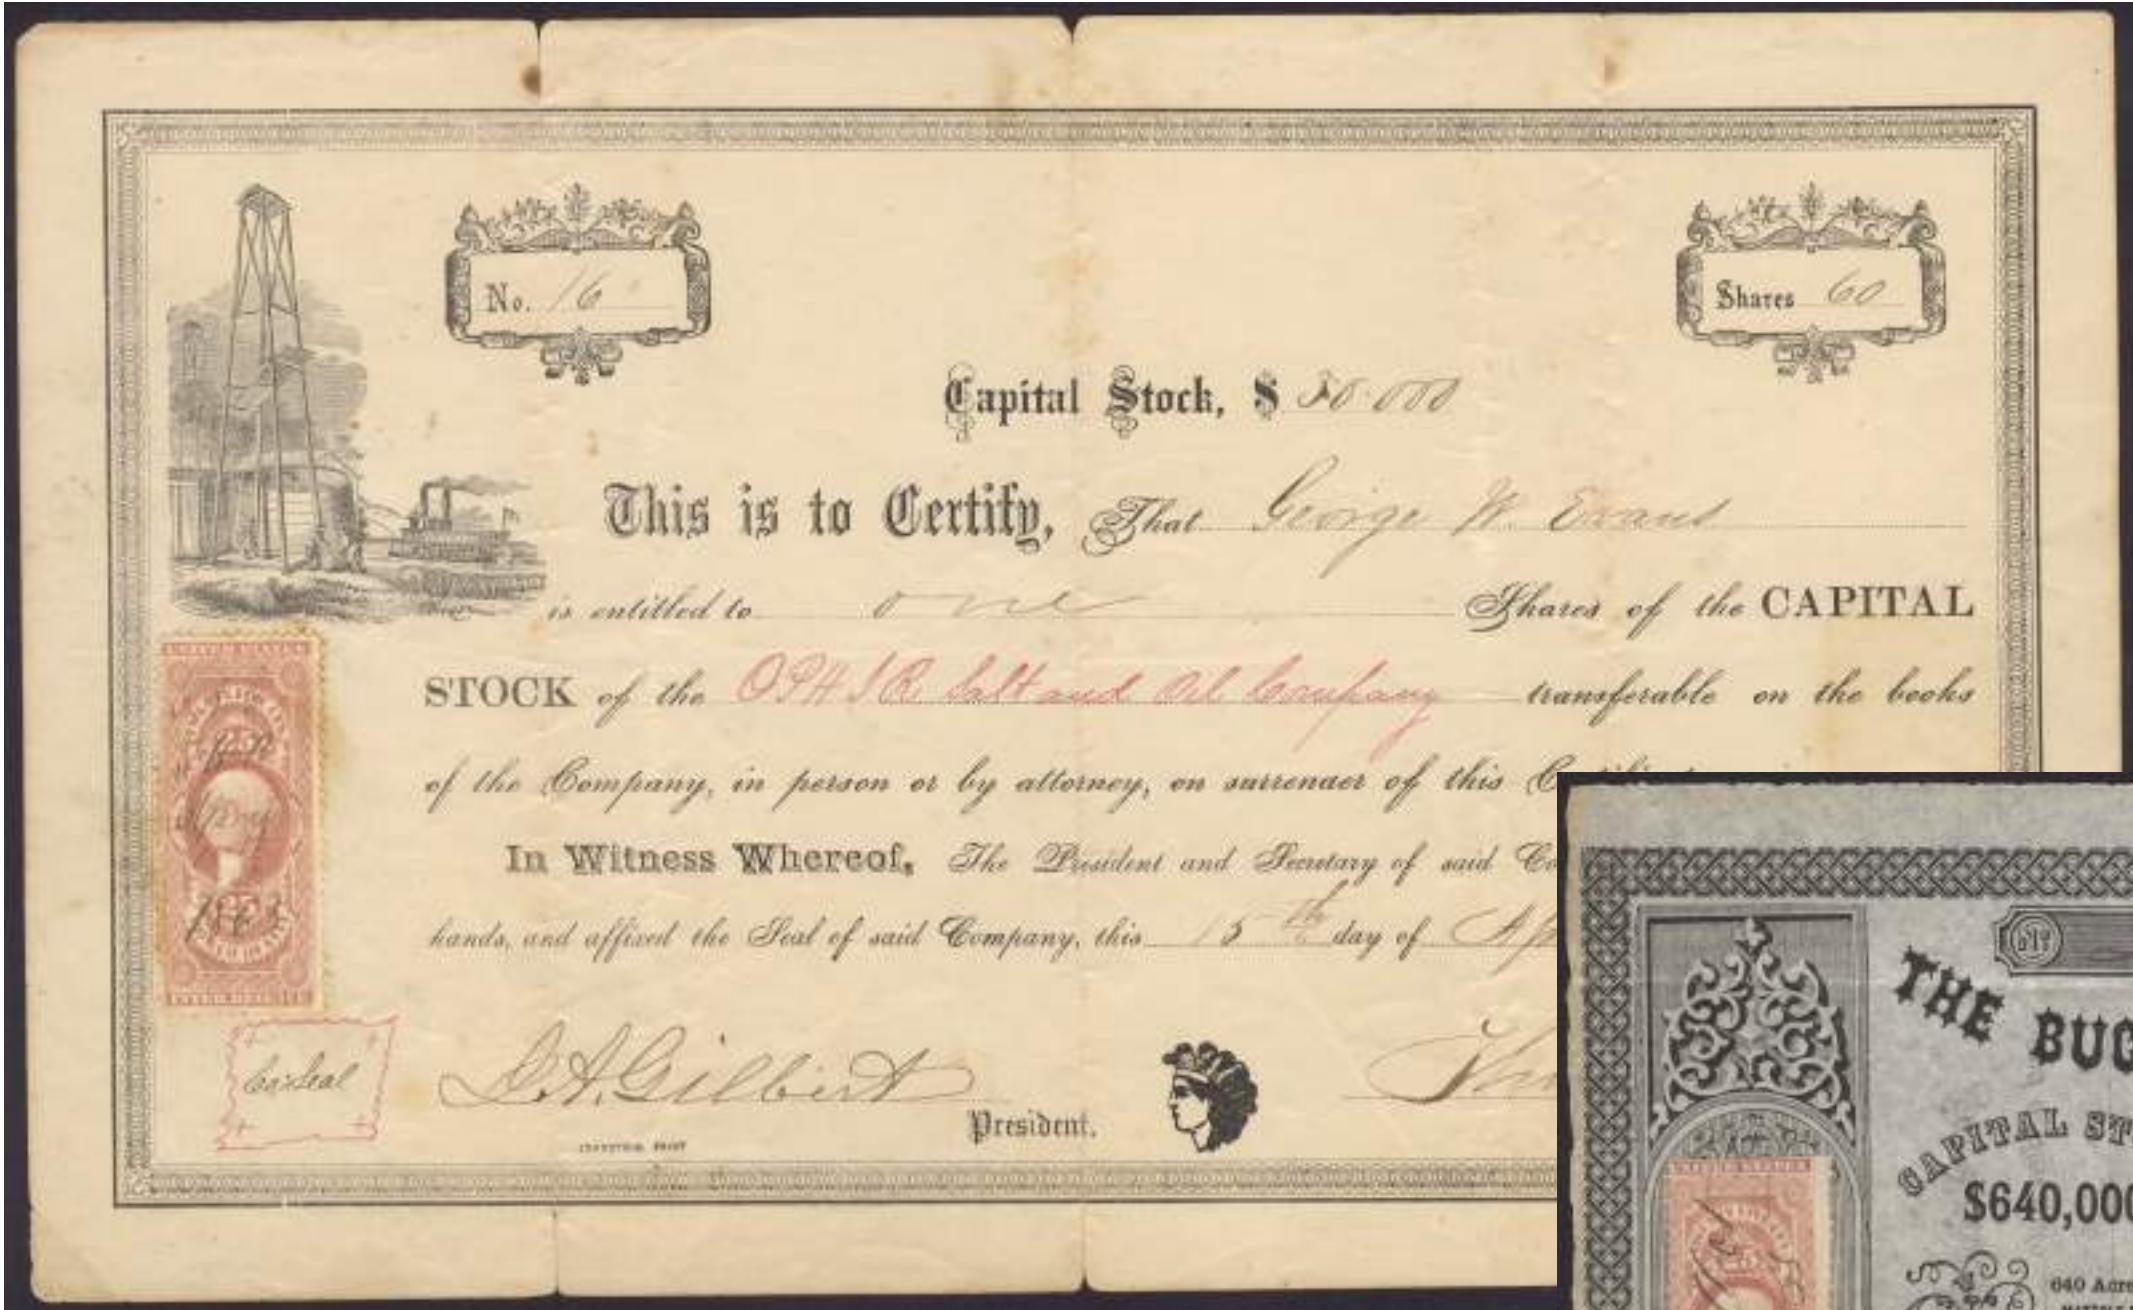 No. 16
Shares 60
Capital Stock, $ 50.000
This is to Certify, That George W. Evans
is entitled to one Shares of the CAPITAL
STOCK of the Salt and Oil Company transferable on the books
of the Company, in person or by attorney, on surrender of this
In Witness Whereof, The President and Secretary of said Co
hands, and affixed the Seal of said Company, this 15th day of Ap
UNITED STATES
25
1863
INTER. REVENUE
Co. Seal
Gilbert
President.
THE BUC
CAPITAL ST
$640,000
UNITED STATES
25
640 Acre